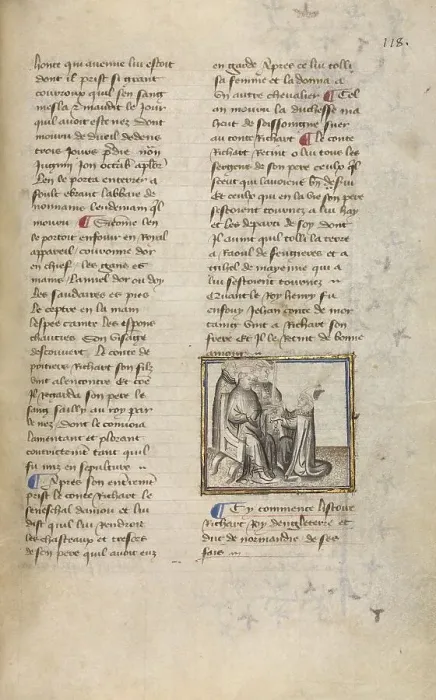 118.
honte qui avenue lui estoit
dont il prist si grant
courroux quil son sang
mesla et maudit le jour
quil avoit este nez dont
mourut de dueil dedens
trois jours
Len le porta enterrer a
lendemain ql
mouru ¶ Si comme len
le portoit enfouir en Royal
appareil couronne dor
en chief les gans es
mains lannel dor ou doy
les es pies
le ceptre en la main
lespee cainte les espons
chauciez Son visaige
descouvert le conte de
poitiers Richart son filz
vint alencontre Et côe
il regarda son pere le
sang sailly au roy par
le nez dont le convoia
lamentant et plorant
tant quil
fu mis en sepulture
¶ Apres son enterremt
prist le conte Richart le
seneschal daniou et lui
dist quil lui rendroit
les chasteaux et tresors
de son pere quil avoit euz
en garde Apres ce lui tolli
sa femme et la donna a
Un autre chevalier ¶ Cel
an mourut la duchesse ma
heut de sessoingne suer
au conte Richart ¶ le conte
Richart Retint o lui tous les
sergens de son pere ceulx ql
sceut qui lavoient bn desivi
Et ceulx qui en la vie son pere
sestoient tournez a lui hay
et les departi de soy dont
Il avint quil tolli la terre
a Raoul de feugieres et a
de mayenne qui a
lui sestoient tournez
Quant le Roy henry fu
enfouy Jehan conte de mor
taing vint a Richart son
frere Et Il le Retint de bonne
amour
¶ Cy commence listoire
Richart Roy dengleterre et
duc de normandie de ses
fais